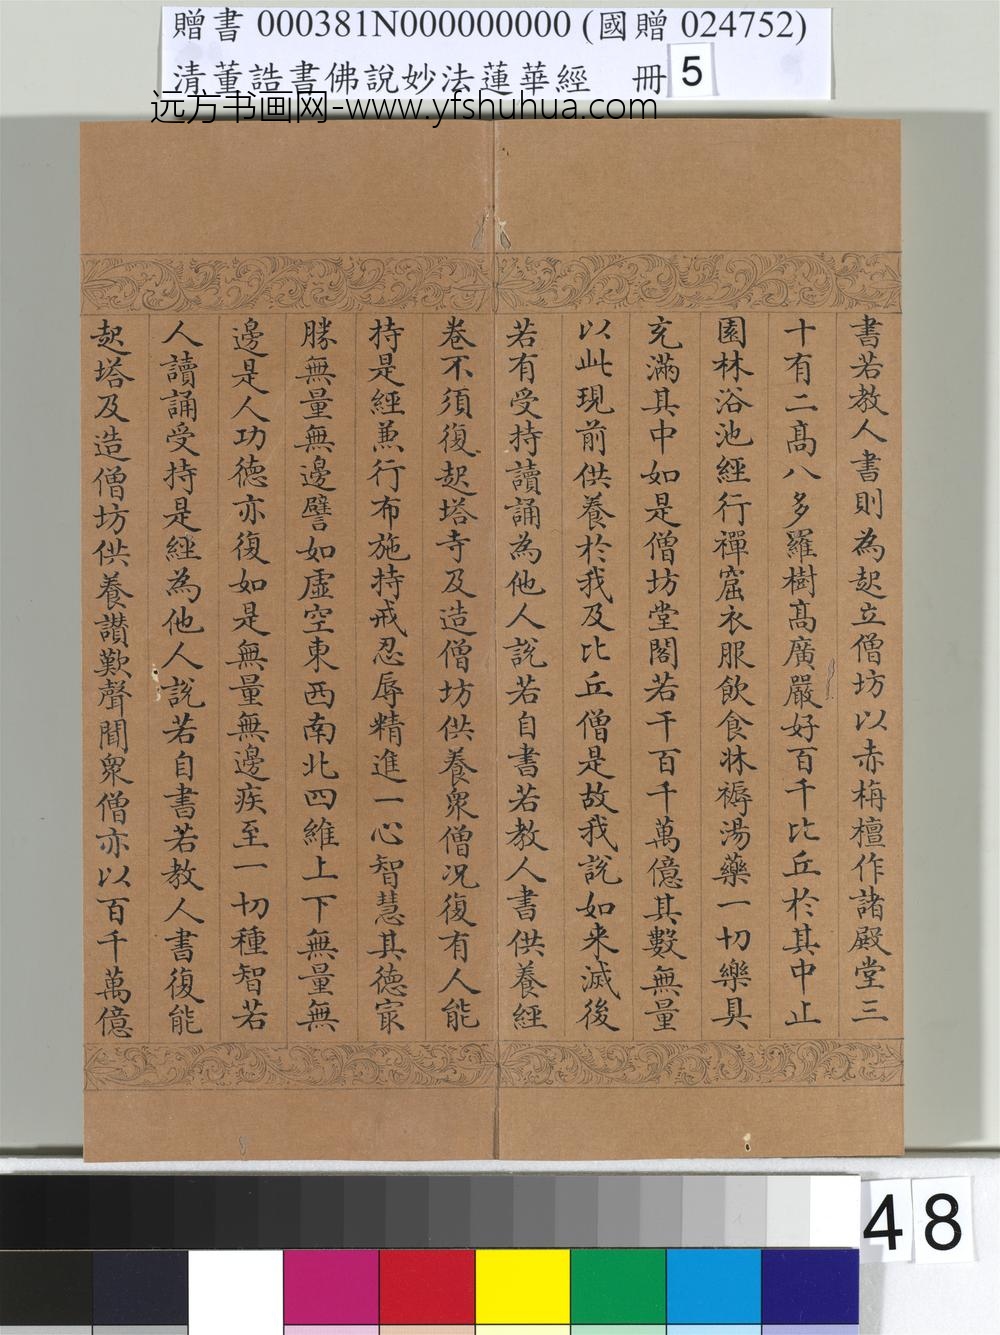 贈書 000381N000000000 (國贈 024752)
清董誥書佛說妙法蓮華經 冊 5
远方书画网-www.yfshuhua.com
書若教人書則為起立僧坊以赤栴檀作諸殿堂三
十有二高八多羅樹高廣嚴好百千比丘於其中止
園林浴池經行禪窟衣服飲食牀褥湯藥一切樂具
充滿其中如是僧坊堂閣若干百千萬億其數無量
以此現前供養於我及比丘僧是故我說如來滅後
若有受持讀誦為他人說若自書若教人書供養經
卷不須復起塔寺及造僧坊供養眾僧况復有人能
持是經兼行布施持戒忍辱精進一心智慧其德㝡
勝無量無邊譬如虛空東西南北四維上下無量無
邊是人功德亦復如是無量無邊疾至一切種智若
人讀誦受持是經為他人說若自書若教人書復能
起塔及造僧坊供養讚歎聲聞眾僧亦以百千萬億
48